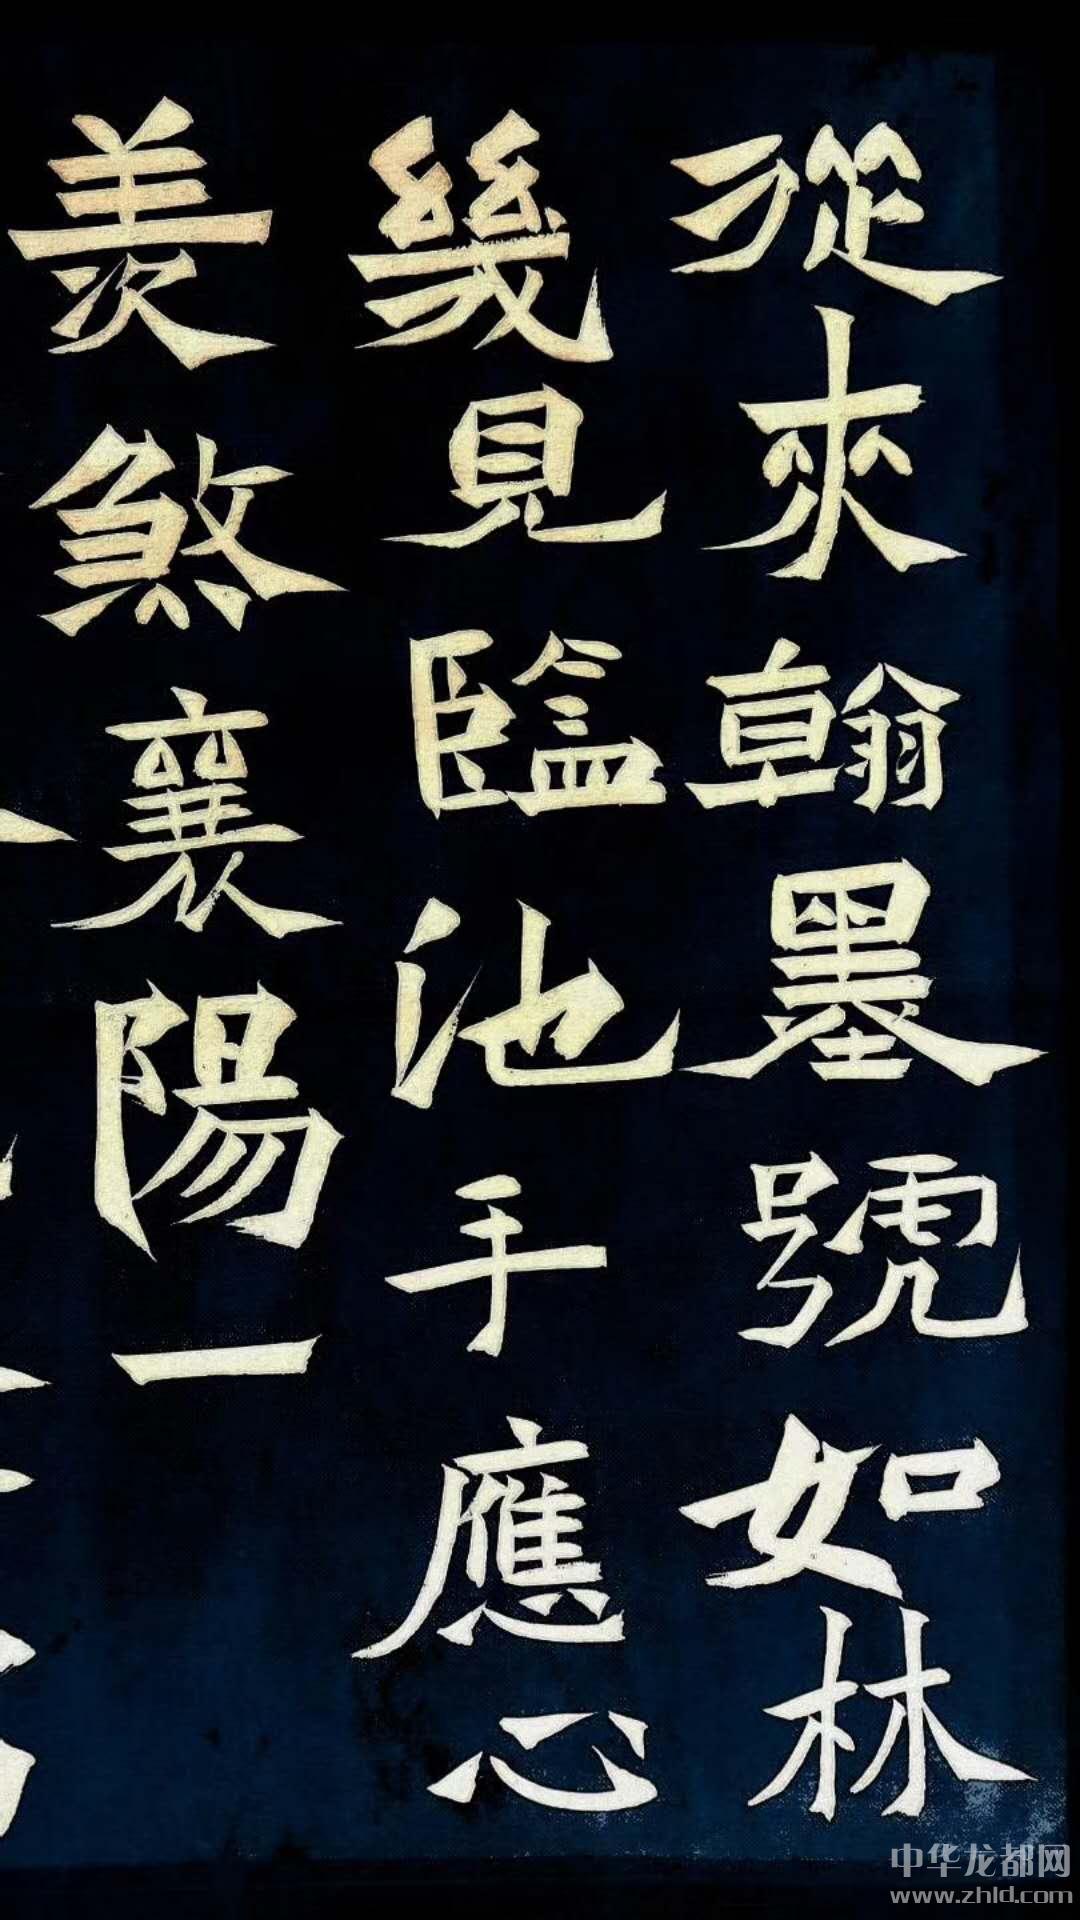 從來翰墨號如林
幾見臨池手應心
羨煞襄陽一
中华龙都网
www.zhld.com